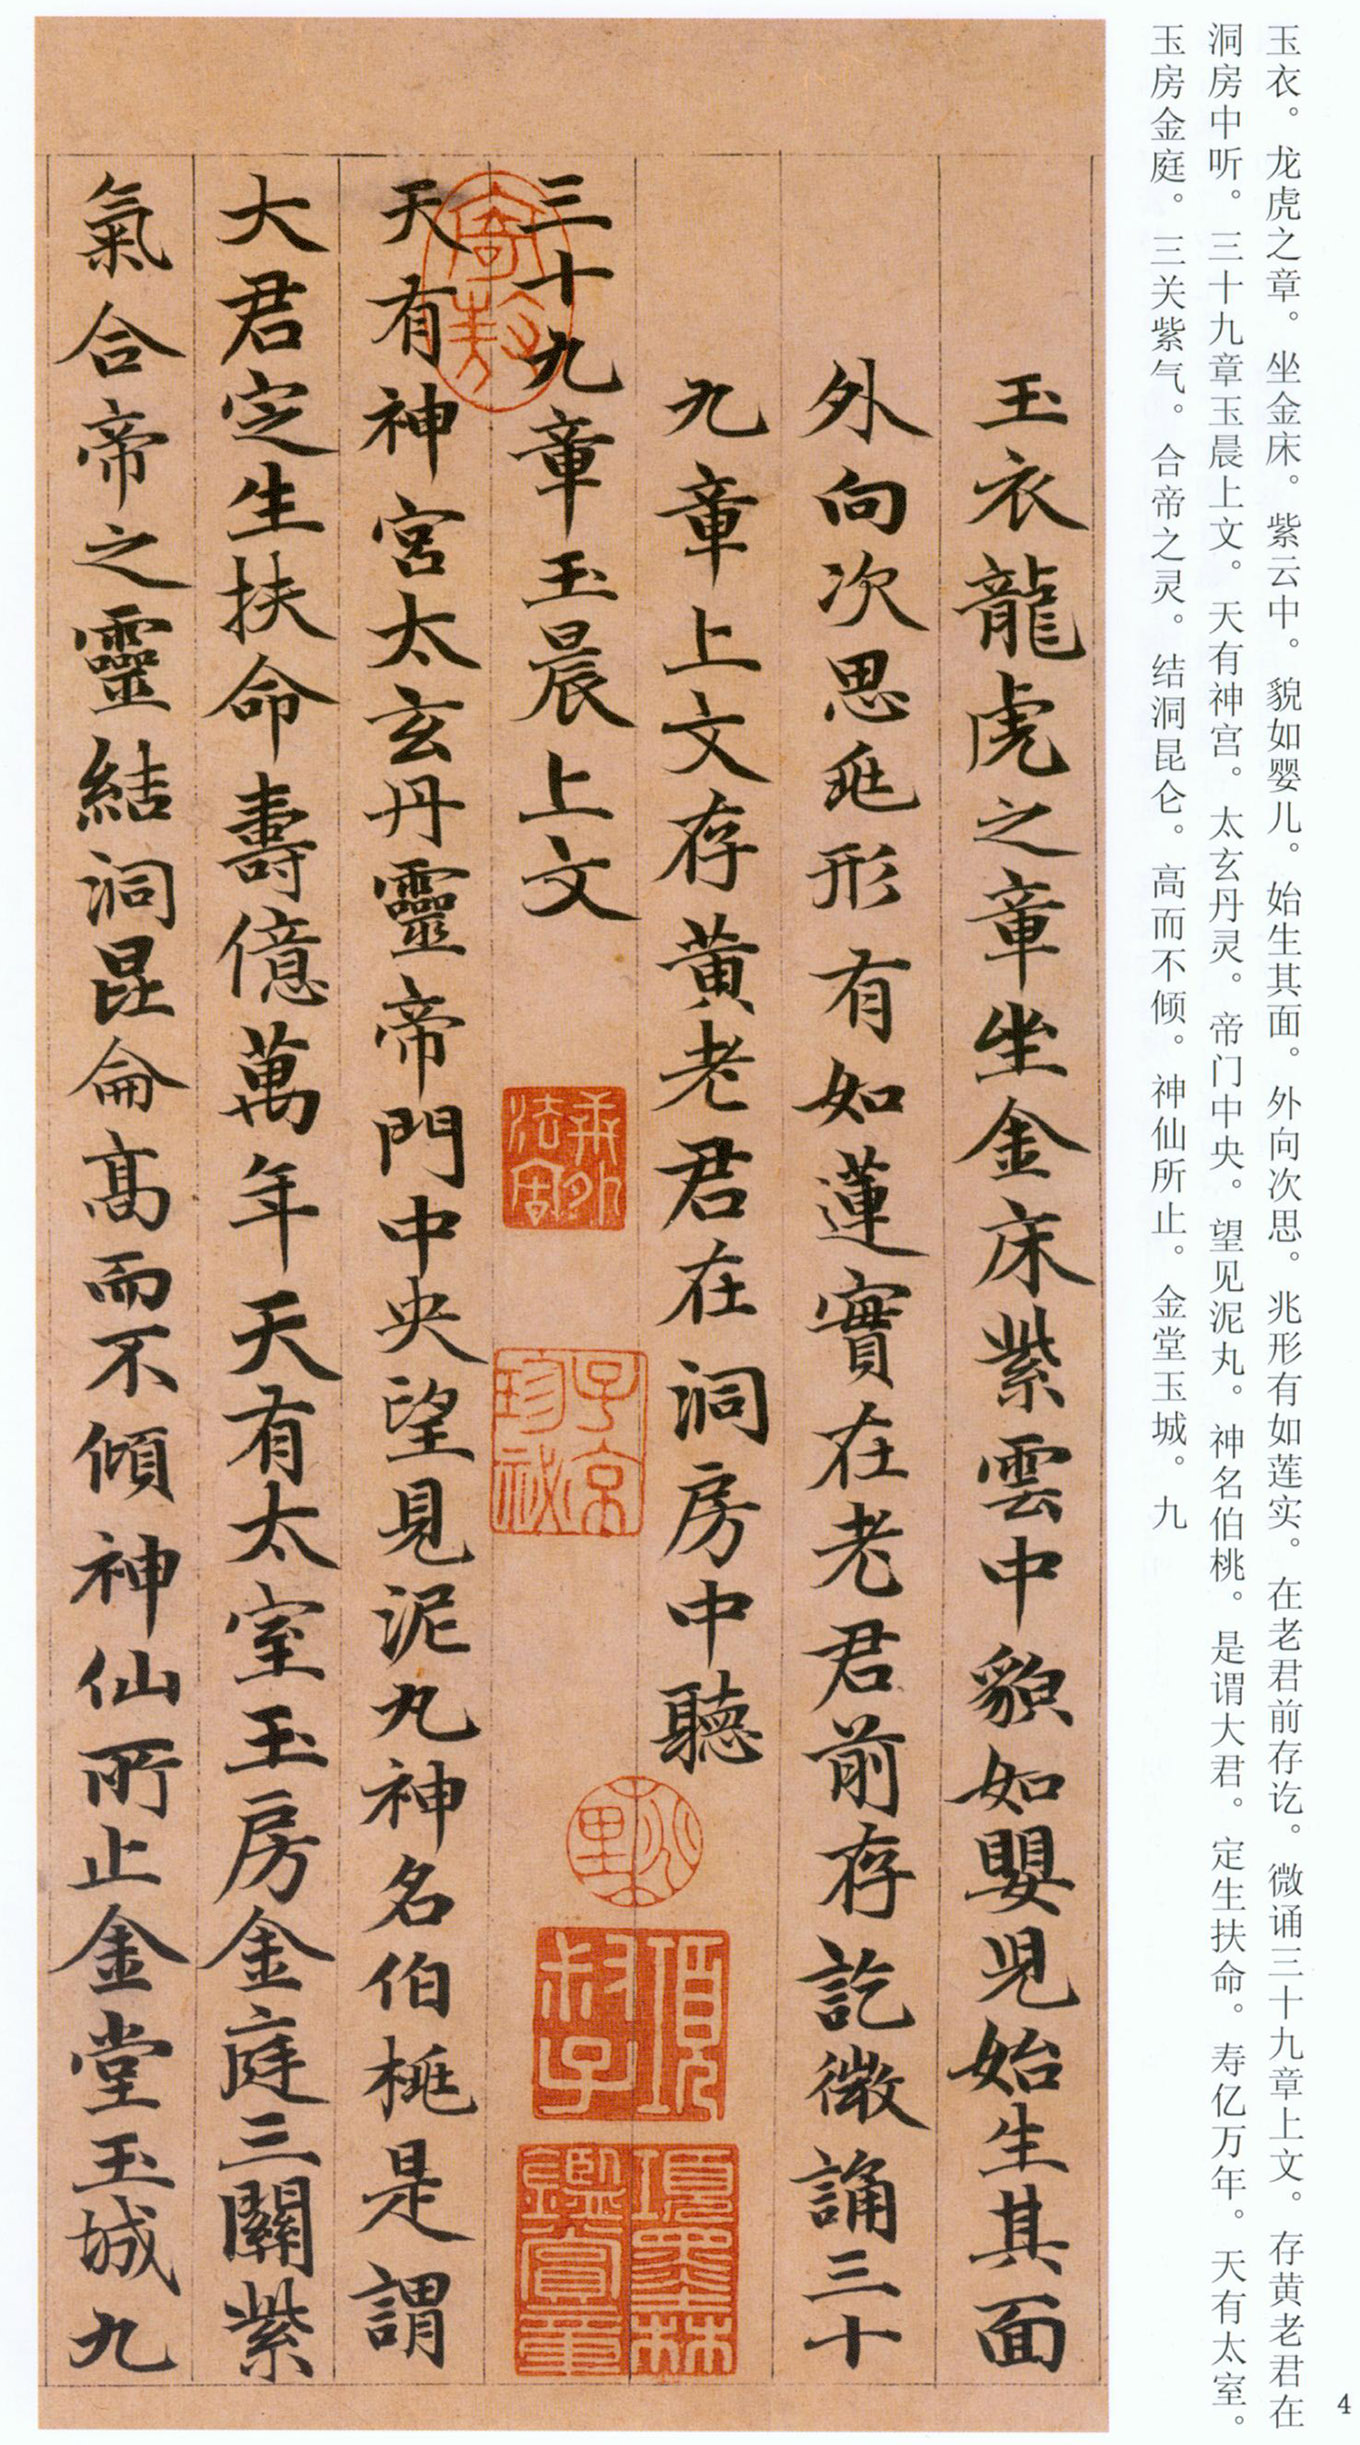 玉衣。龙虎之章。坐金床。紫云中。貌如婴儿。始生其面。外向次思。兆形有如莲实。在老君前存讫。微诵三十九章上文。存黄老君在
洞房中听。三十九章玉晨上文。天有神宫。太玄丹灵。帝门中央。望见泥丸。神名伯桃。是谓大君。定生扶命。寿亿万年。天有太室。
玉房金庭。三关紫气。合帝之灵。结洞昆仑。高而不倾。神仙所止。金堂玉城。九
玉衣龍虎之章坐金床紫雲中貌如嬰兒始生其面
外向次思兆形有如蓮實在老君前存訖微誦三十
九章上文存黃老君在洞房中聽
三十九章玉晨上文
天有神宮太玄丹靈帝門中央望見泥丸神名伯桃是謂
大君定生扶命壽億萬年天有太室玉房金庭三關紫
氣合帝之靈結洞昆侖高而不傾神仙所止金堂玉城九
寄敖
子京
珍祕
項
叔子
項墨林
鑑賞章
4